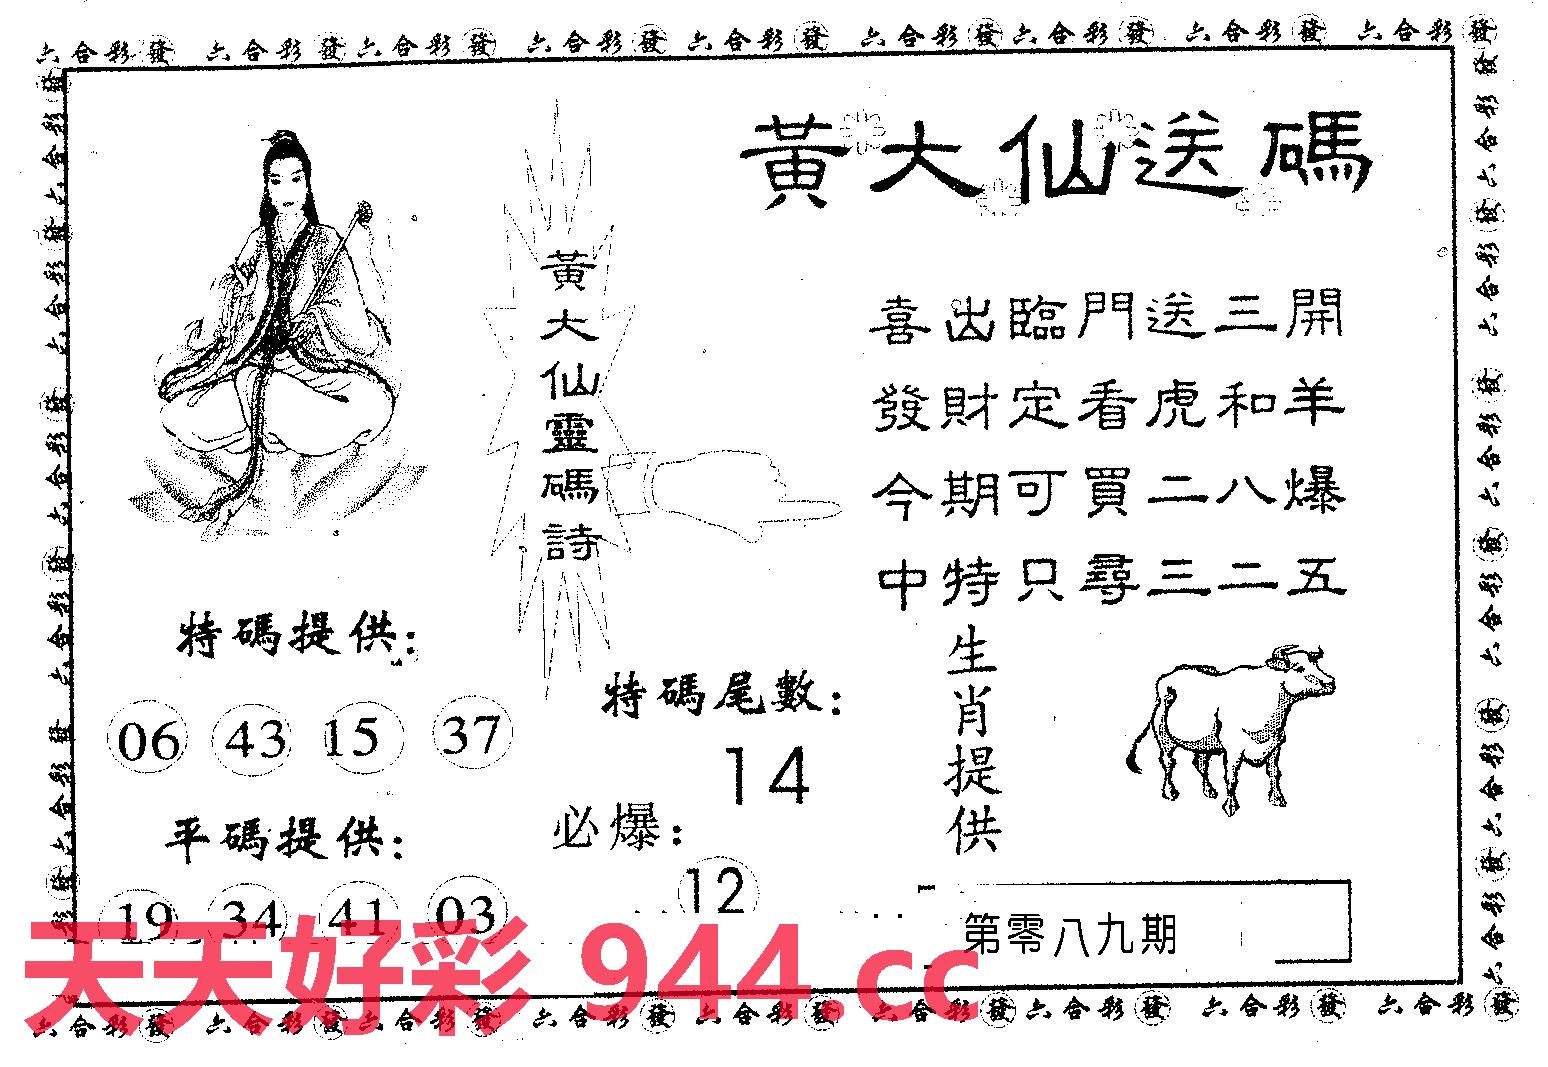 六合彩發 六合彩發 六合彩發 六合彩發 六合彩發 六合彩發 六合彩發 六合彩發 六合彩發
黃大仙送碼
黃大仙靈碼詩
喜出臨門送三開
發財定看虎和羊
今期可買二八爆
中特只尋三二五
特碼提供:
06 43 15 37
平碼提供:
19 34 41 03
特碼尾數:
14
必爆:
12
生肖提供
第零八九期
天天好彩 944.cc
六合彩發 六合彩發 六合彩發 六合彩發 六合彩發 六合彩發 六合彩發 六合彩發 六合彩發